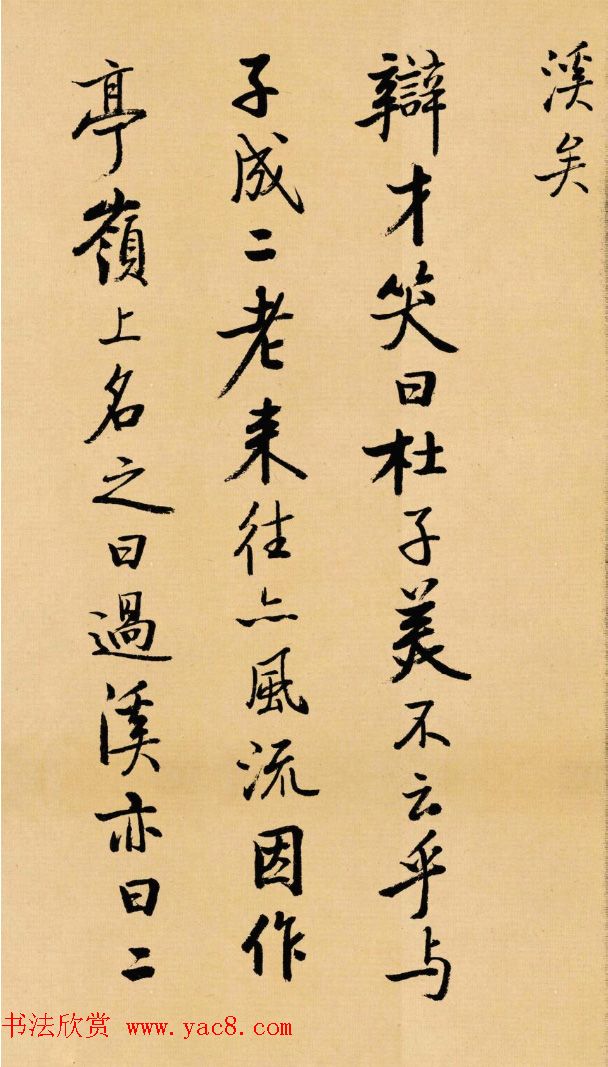 溪矣
辯才笑曰杜子美不云乎与
子成二老来往亦風流因作
亭嶺上名之曰過溪亦曰二
书法欣赏 www.yac8.com